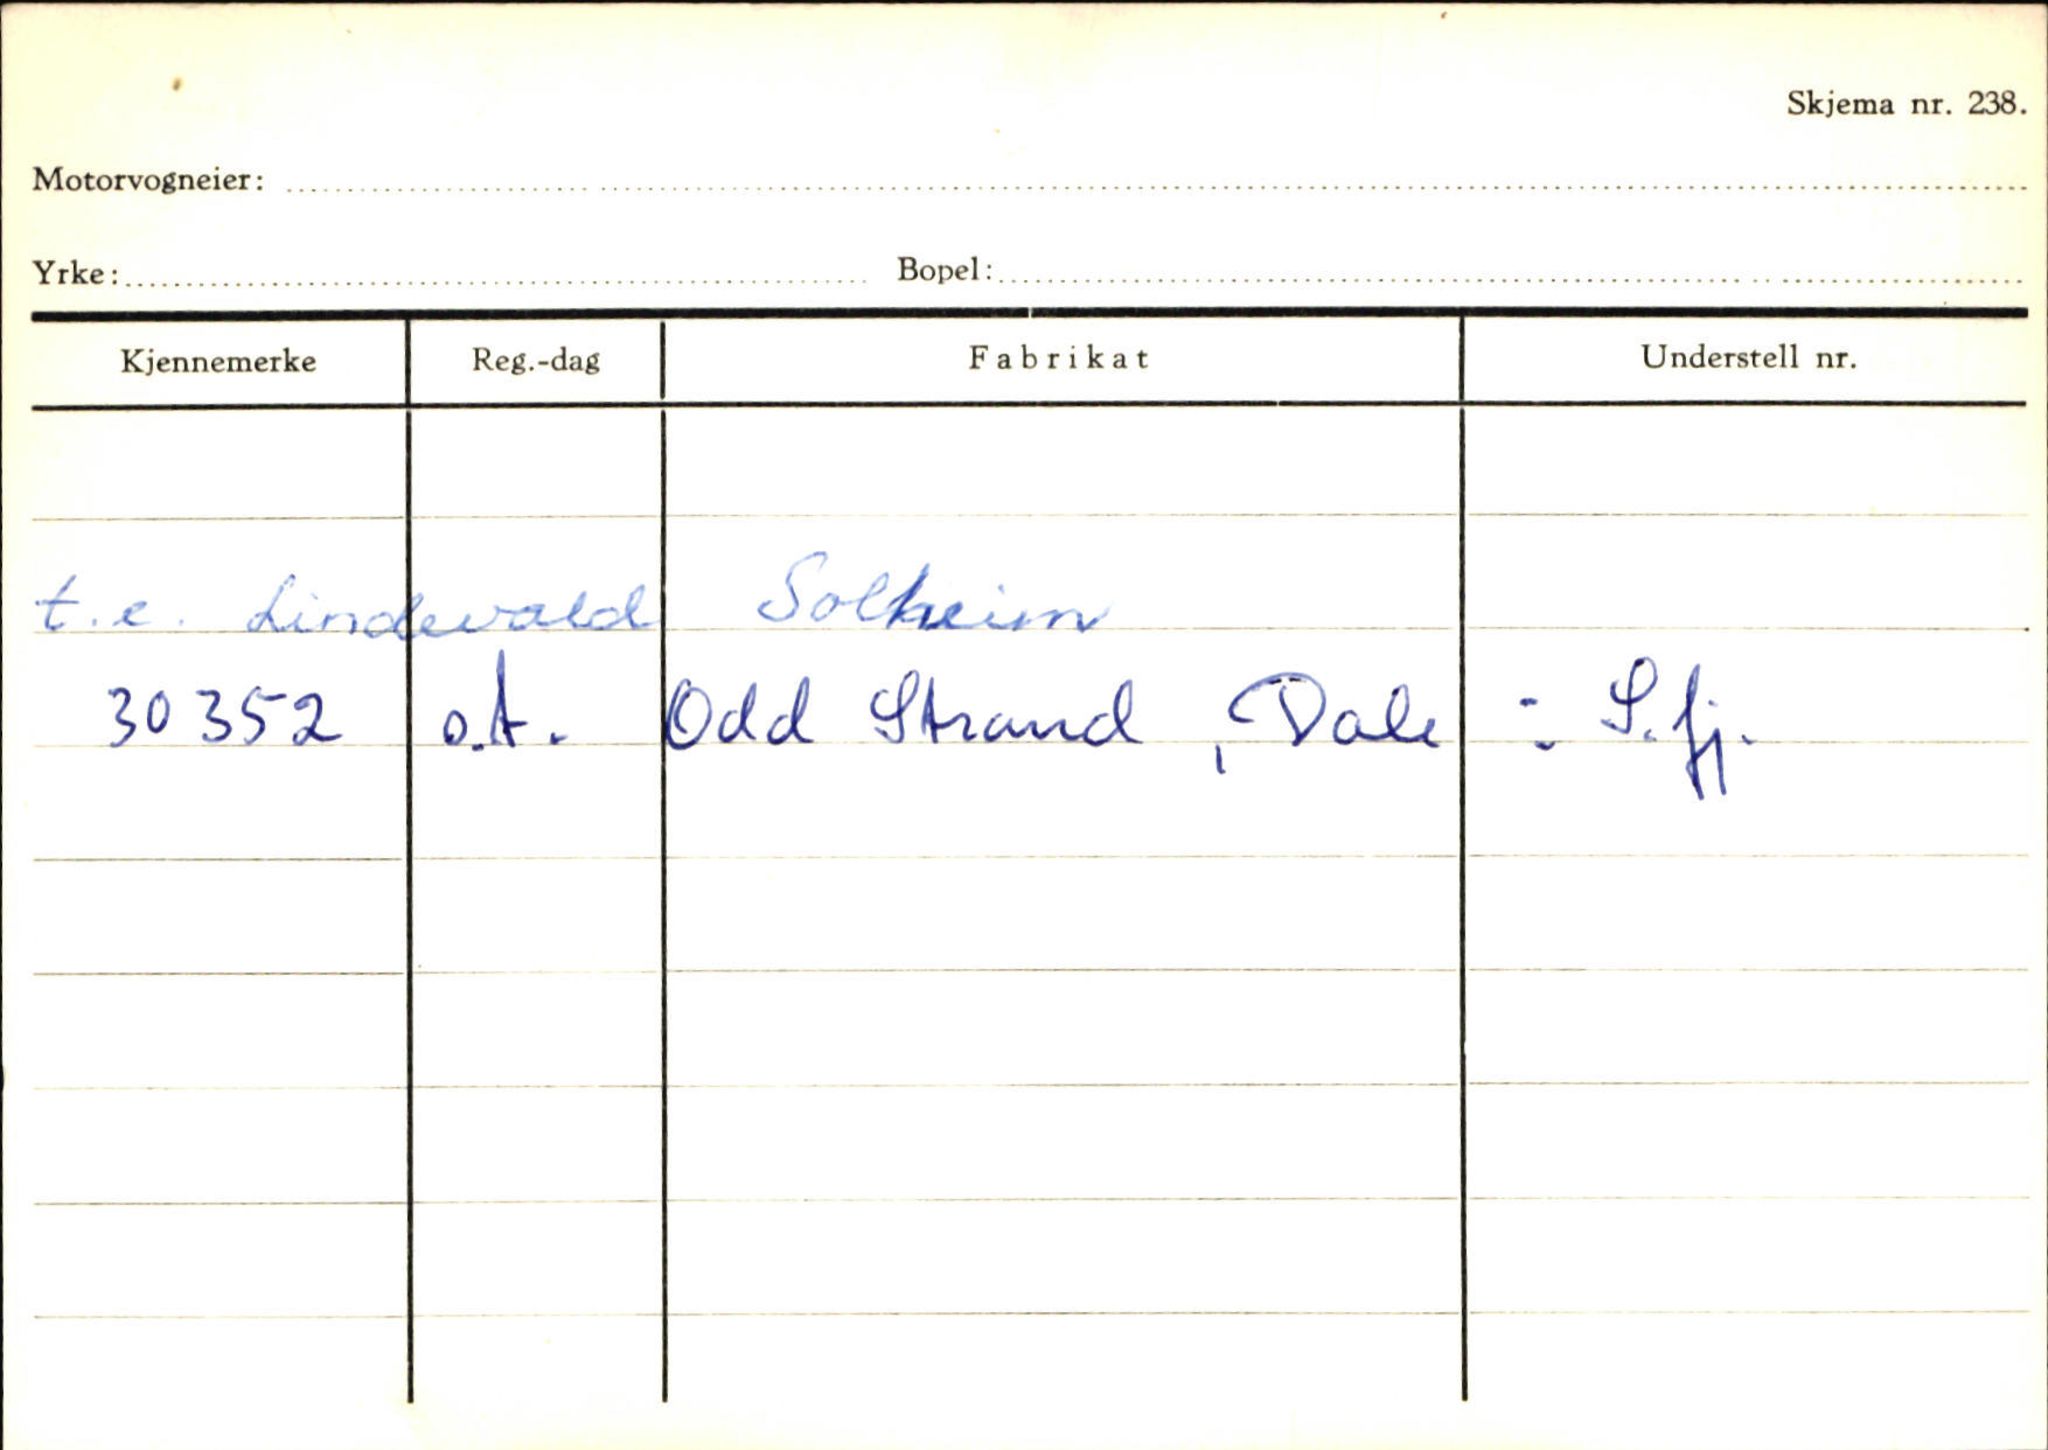 Skjema nr. 238.
Motorvogneier:
Yrke: Bopel:
Kjennemerke Reg.-dag Fabrikat Understell nr.
t.e. Lindevald Solheim
30352 o.t. Odd Strand, Dale : S.fj.